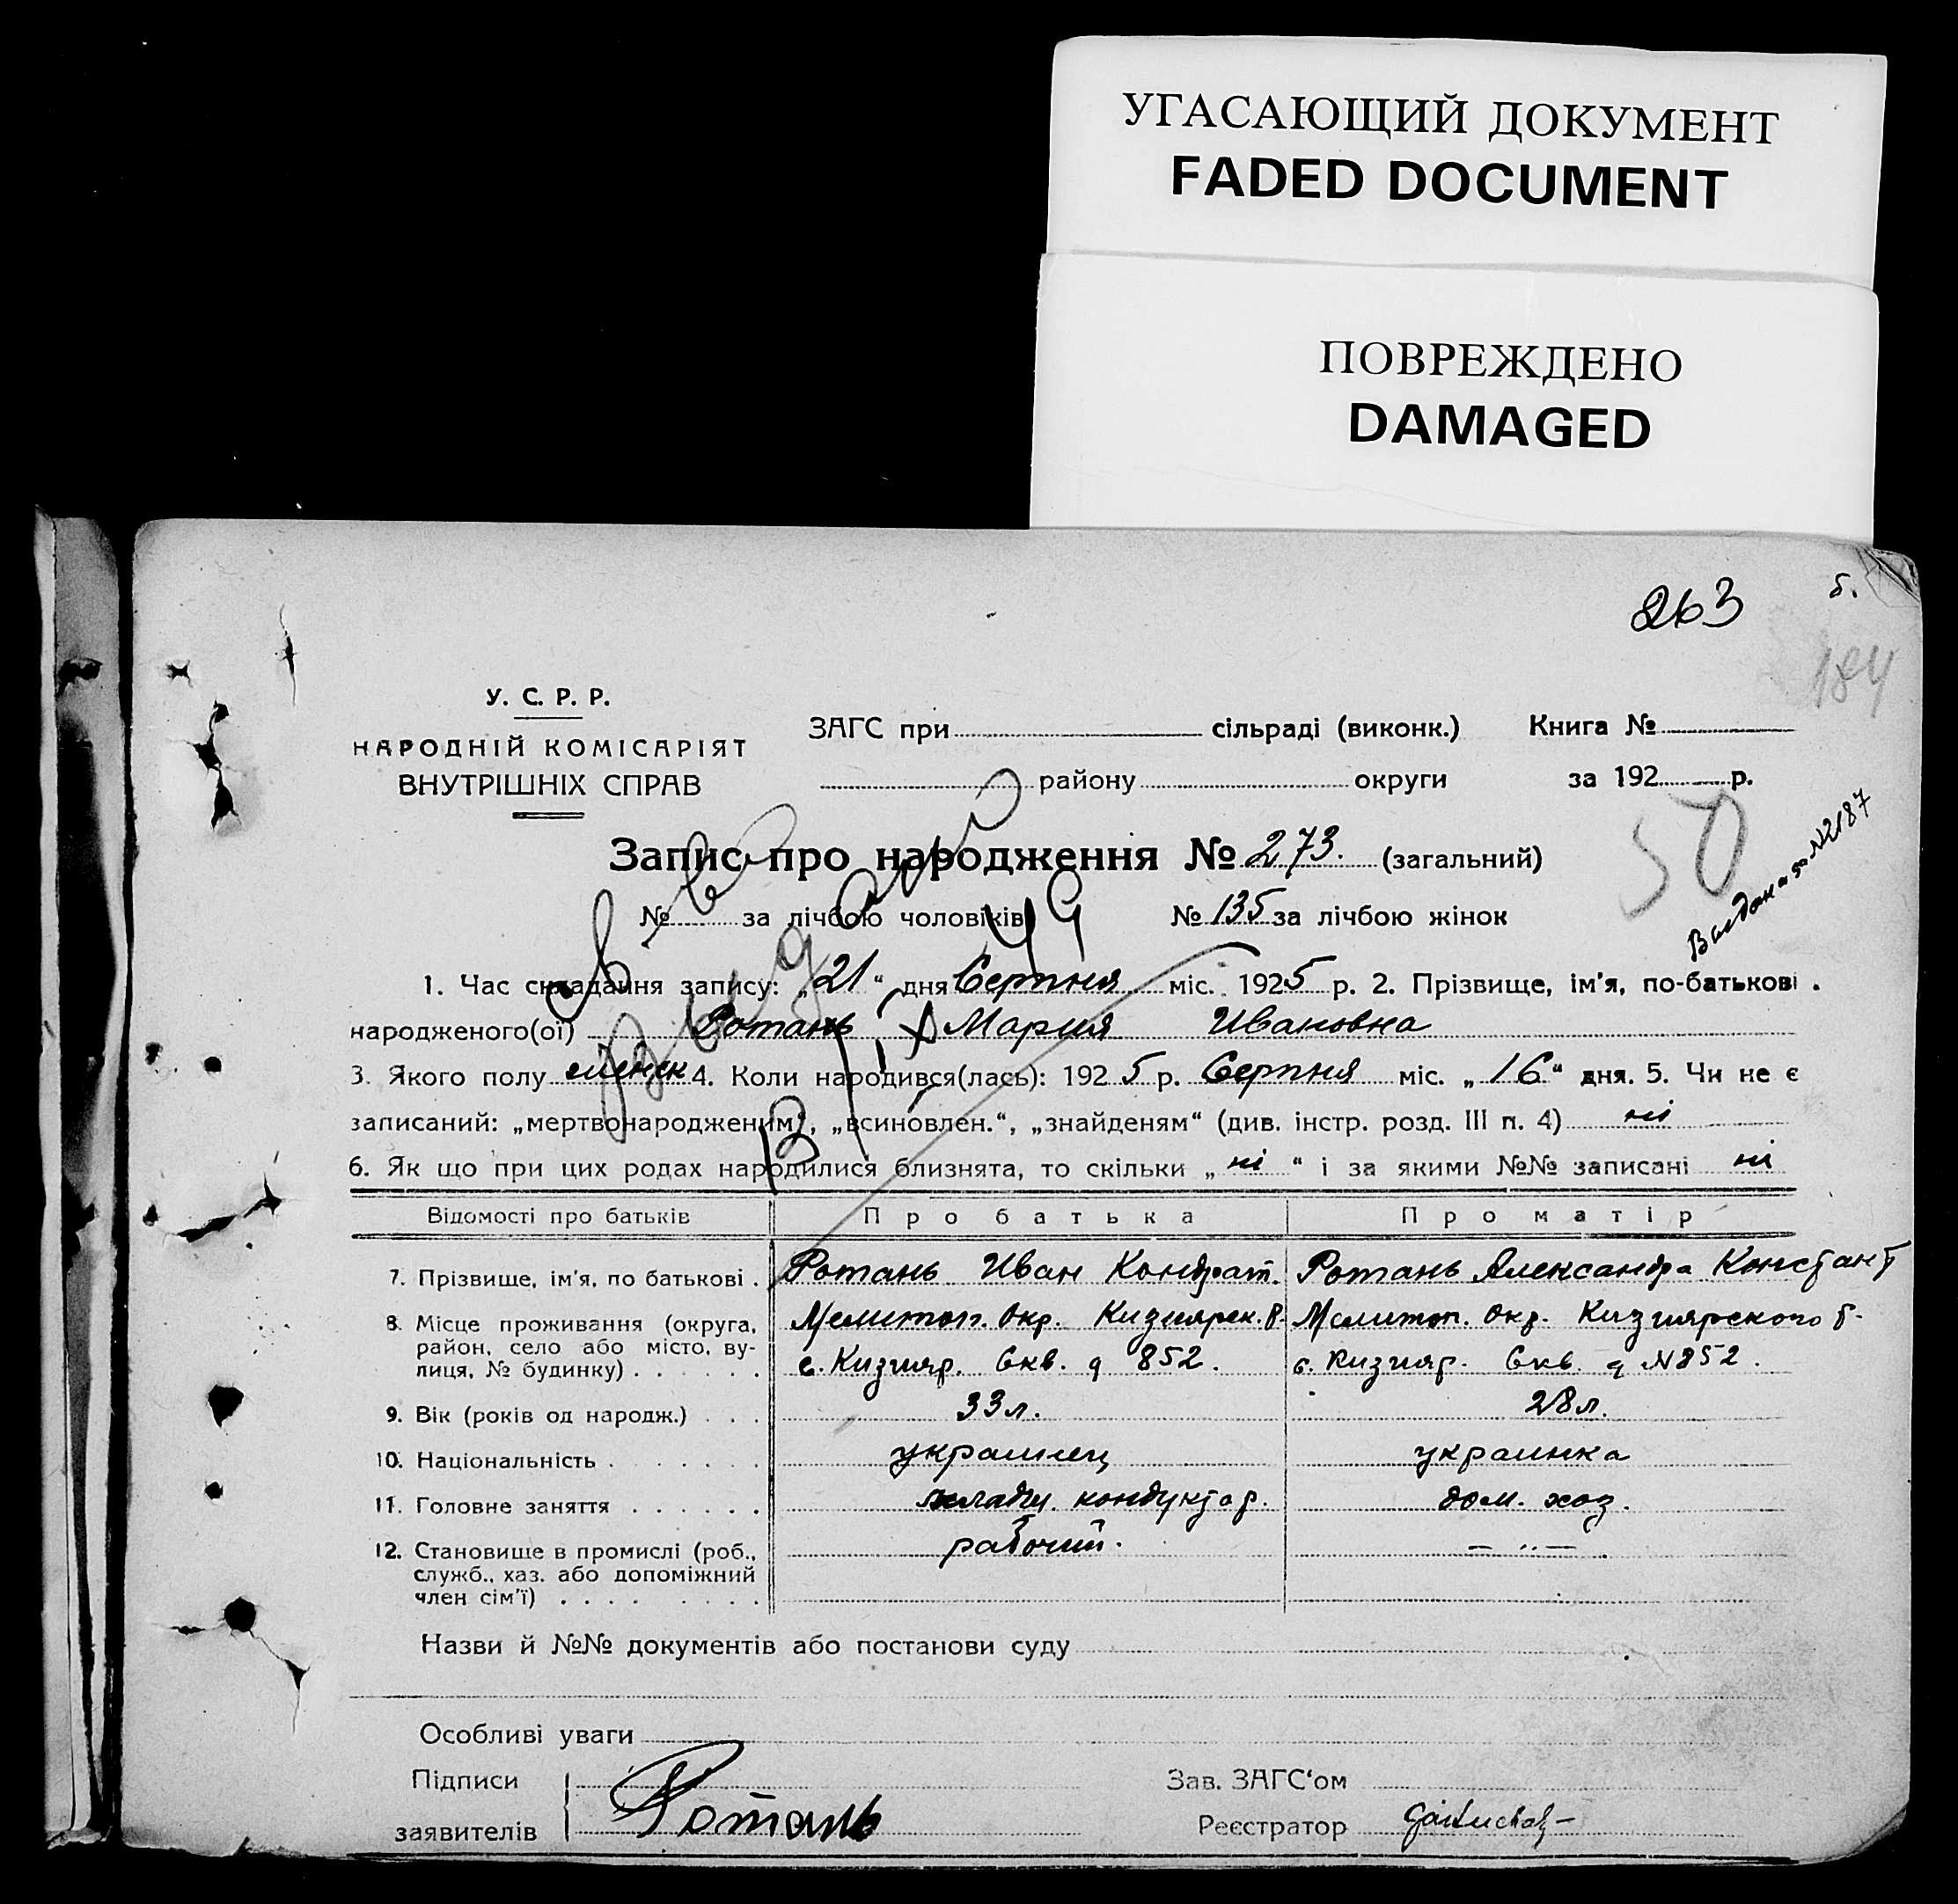 УГАСАЮЩИЙ ДОКУМЕНТ
FADED DOCUMENT
ПОВРЕЖДЕНО
DAMAGED
263
184
У. С. Р. Р.
НАРОДНІЙ КОМІСАРІЯТ
ВНУТРІШНІХ СПРАВ
ЗАГС при сільраді (виконк.) Книга №
району округи за 192 р.
50
№2187
Запис про народження № 273. (загальний)
№ за лічбою чоловіків № 135 за лічбою жінок
1. Час складання запису: „21“ дня Серпня міс. 1925 р. 2. Прізвище, ім'я, по-батькові
народженого(ої) Ротань Мария Ивановна
3. Якого полу женск 4. Коли народився(лась): 1925 р. Серпня міс. „16“ дня. 5. Чи не є
записаний: „мертвонародженим“, „всиновлен.“, „знайденям“ (див. інстр. розд. III п. 4) ні
6. Як що при цих родах народилися близнята, то скільки „ні“ і за якими №№ записані ні
Відомості про батьків Про батька Про матір
7. Прізвище, ім'я, по батькові . Ротань Иван Кондрат. Ротань Александра Констант
8. Місце проживання (округа, район, село або місто, вулиця, № будинку) . . . . . . Мелитоп. Окр. Кизиярск. р. с. Кизияр. Скв. д 852. Мелитоп. Окр. Кизиярского р. с. Кизияр. Скв. д №852.
9. Вік (років од народж.) . . . 33 л. 28 л.
10. Національність . . . . . . украинец украинка
11. Головне заняття . . . . . . младш. кондуктор. дом. хоз.
12. Становище в промислі (роб., служб., хаз. або допоміжний член сім'ї) . . . . . . . . рабочий. — „ —
Назви й №№ документів або постанови суду
Особливі уваги
Підписи
заявителів Ротань
Зав. ЗАГС'ом
Реєстратор